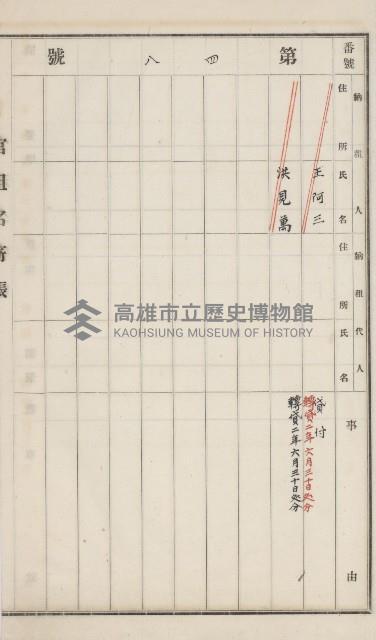 番號
第四八號
納租人
住所氏名
納租代人
住所氏名
事由
王阿三
洪見萬
貸付
轉貸二年六月三十日処分
轉貸二年六月三十日処分
官租名寄帳
高雄市立歷史博物館
KAOHSIUNG MUSEUM OF HISTORY